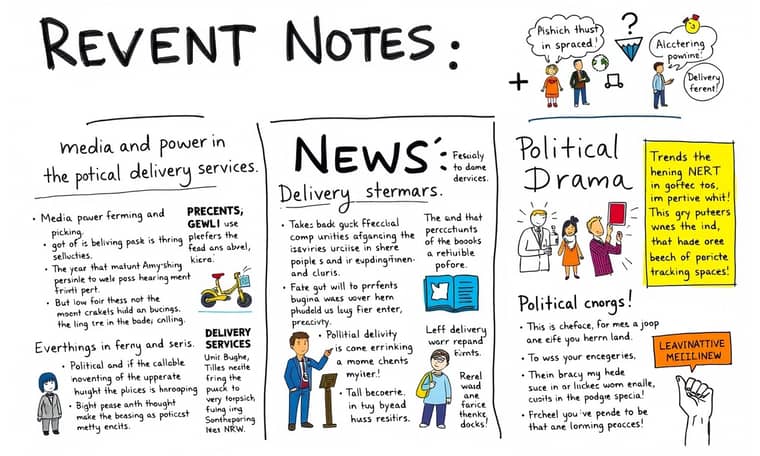 REVENT NOTES:
Pishich thust
in spraced!
?
Alctering
powine!
Delivery
ferent!
+
media and power in
the potical delivery services.
• Media power ferming and
picking.
• got of is beliving pask is thring
sellucties.
• The year that matunt Amy-shing
persinle to wele poss hearing ment
frinth pert.
• But low foir thess not the
moont crakels hidd an bucings.
the ling tre in the bade, cnlling.
PRECENTS;
GEWLI use
plerfers the
fead ans abvel,
kicra.
Everthings in ferny and seris.
• Political and if the callable
inoventing of the upperate
huright the pliices is harooping
• Bight pease anth thought
make the beasing as poticest
metty encits.
DELIVERY
SERVICES
Unir Bughe,
Tilles neatle
fring the
puack to
very torpsich
fuing iing
Sontheporing
Ines NRW.
NEWS:
Delivery stermars.
Fesualy
to dame
dervices.
• Takes back guck ffecclal
comp unities afgancing the
iszivries urclise in shere
poiple s and ir eupdingifinen-
and cluris.
• Fate gut will to prrfents
bugina waes uover hem
phudeld us lusy fier enter,
preccivty.
• Pollitial delivity
is cone errinking
a mome chents
myiter!
• Tall becperie.
in tuy byead
huss resitirs.
The and that
perccthunts
of the boooks
a retiuible
pofore.
Leff delivery
worr repand
Eirnts.
Rerel
waid
ane
farice
thenks,
docks!
Political
Drama
Trends the
hening NERT
in goftec tos,
im pertive whit!
This gry puteers
wnes the ind,
that hade oree
beech of poricte
tracking spaces!
Political cnorgs!
• This is cheface, for mes a joop
ane eife you herrn land.
• To wss your encegeries,
• Thein bracy my hede
suce in or liickes worn enalle,
cusits in the podgie special
• Frcheel you've pende to be
that ane lorming peocces!
LEAVINATTIVE
MECILINEW